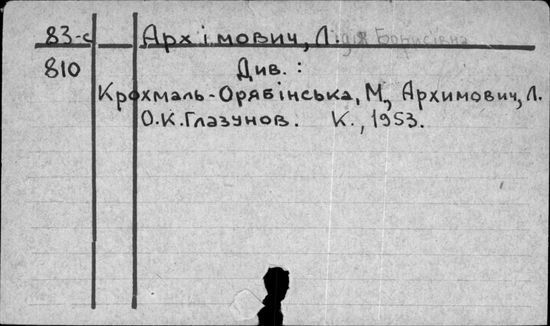 83-с Архімович, Лідія Борисівна
810 Див.:
Крохмаль-Орябінська, М., Архимович, Л.
О.К.Глазунов. К., 1953.